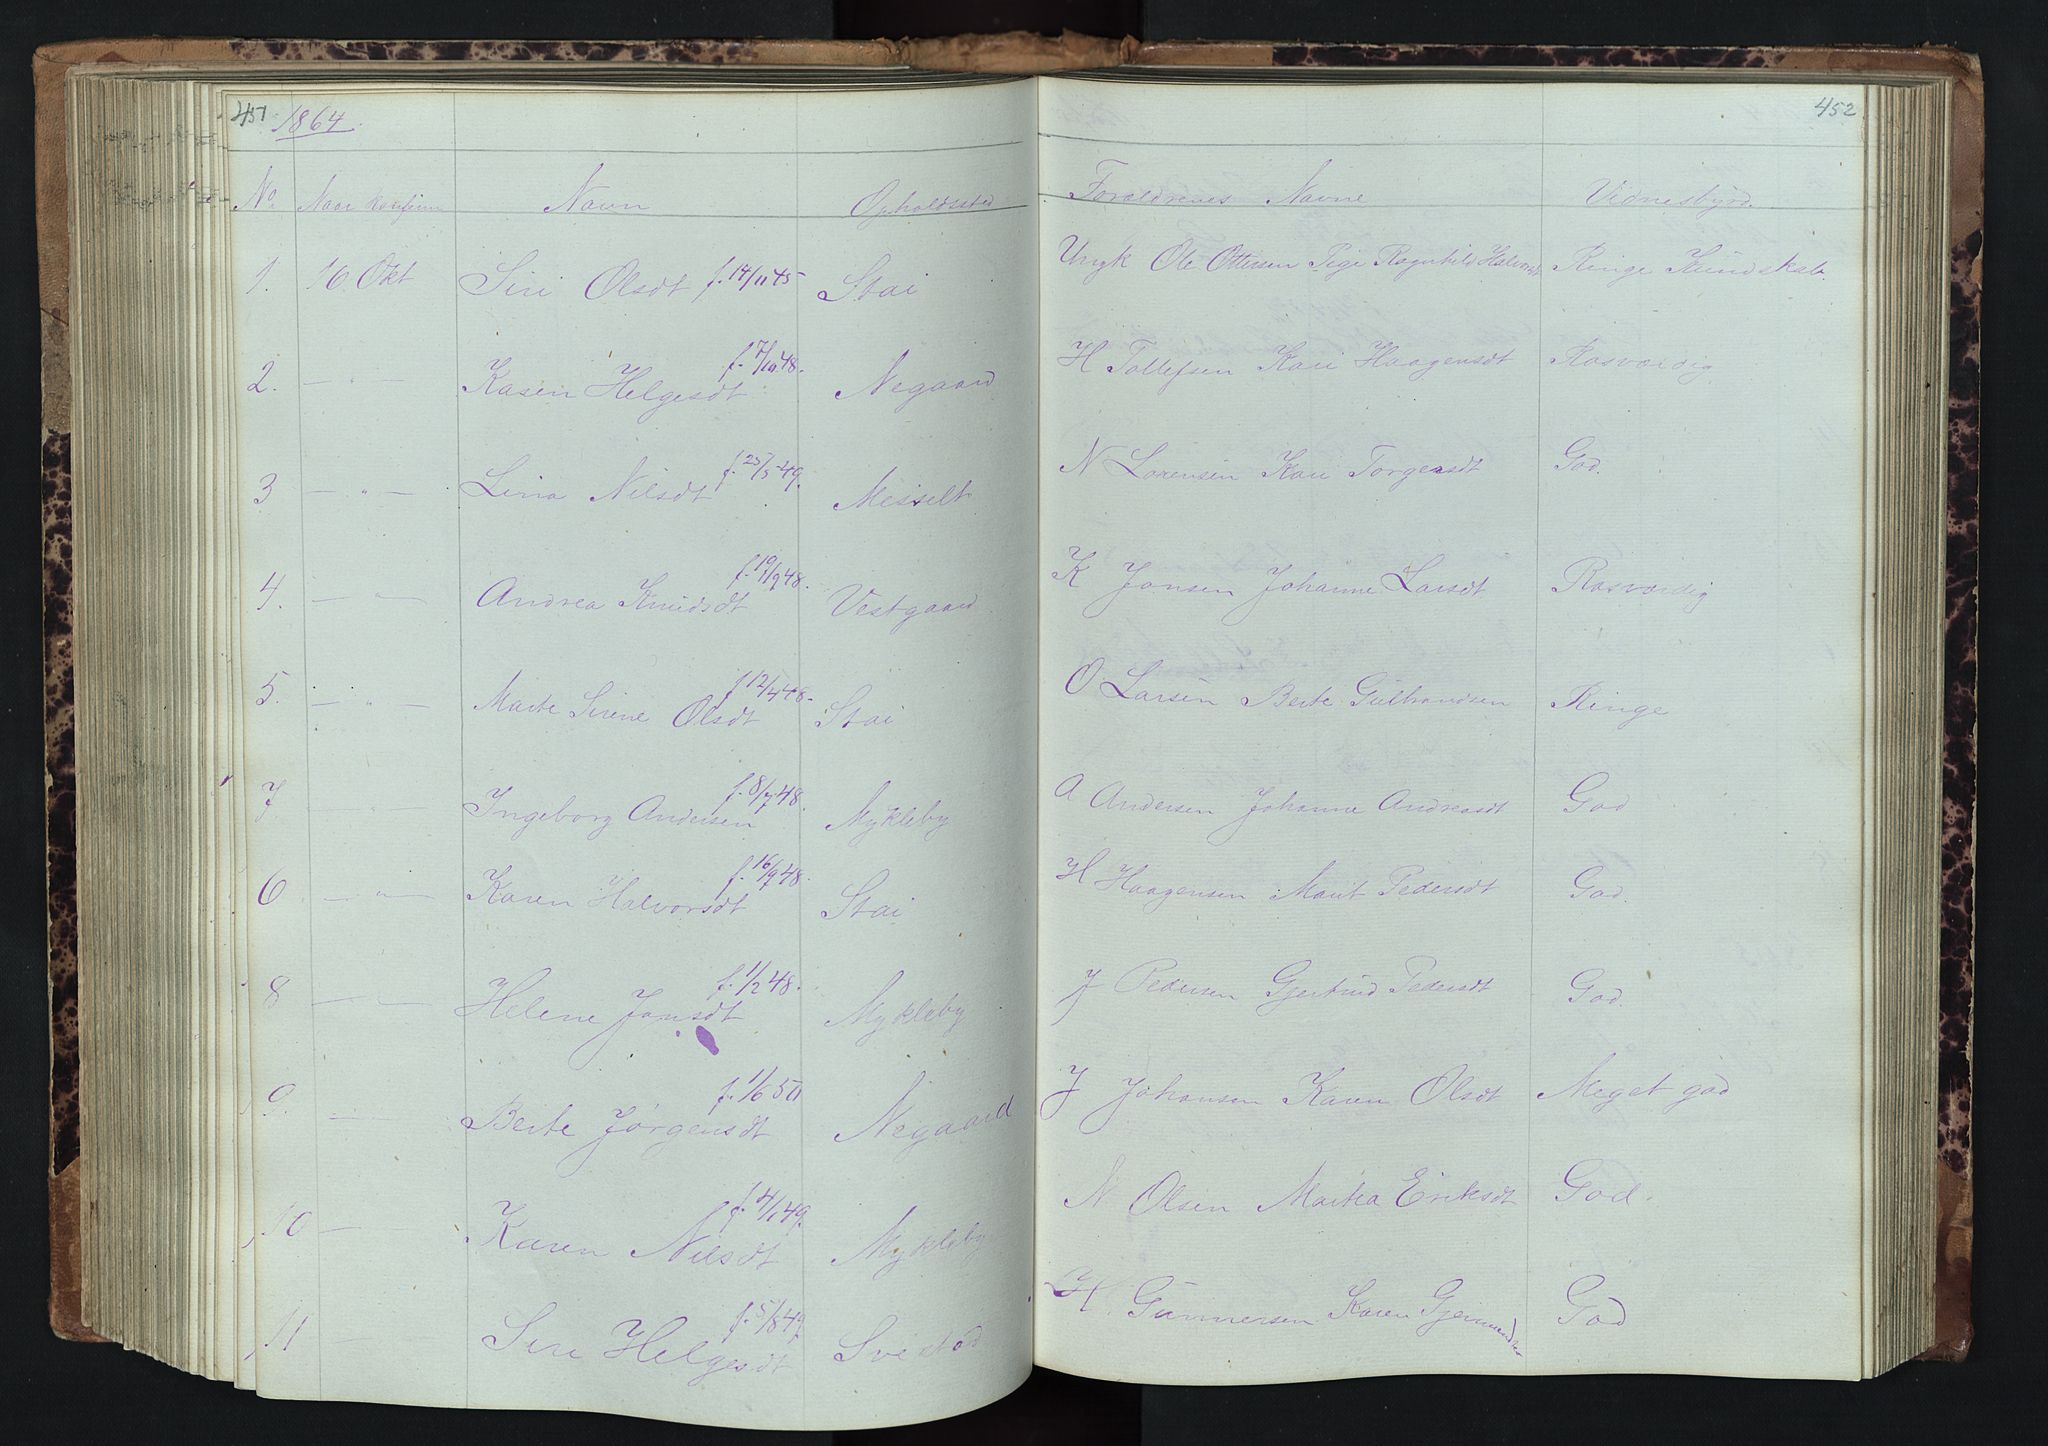 451 1864 452
No. Naar Konfirm Navn Opholdssted Forældrenes Navne Vidnesbyrd.
1. 16 Okt Siri Olsdt f. 14/11 45 Stai Ungk Ole Ottersen Pige Ragnhild Halvorsdt Ringe Kundskab.
2. — " — Karen Helgesdt f. 7/10 48. Negaard H Tollefsen Kari Haagensdt Rosværdig
3 — " — Lina Nilsdt f. 23/5 49. Messelt N Lorensen Kari Torgersdt God.
4. — " — Andrea Knudsdt f. 19/9 48. Vestgaard K Jonsen Johanne Larsdt Rosværdig
5. — " — Marte Sirene Olsdt f 12/4 48. Stai O Larsen Berte Gulbrandsen Ringe
7 — " — Ingeborg Andersen f. 8/7 48. Mykleby A Andersen Johanne Andreasdt God
6 — " — Karen Halvorsdt f. 16/9 48. Stai H Haagensen Marit Pedersdt God.
8 — " — Helene Jonsdt f. 1/2 48. Mykleby J Pedersen Gjertrud Pedersdt God.
9. — Berte Jørgensdt f. 1/6 50 Negaard J Johansen Karen Olsdt Meget god
10 — Karen Nilsdt f. 4/1 49. Mykleby N Olsen Martea Eriksdt God.
11 — Siri Helgesdt f. 5/8 49 H. Gunnersen Karen Gjermundsdt God